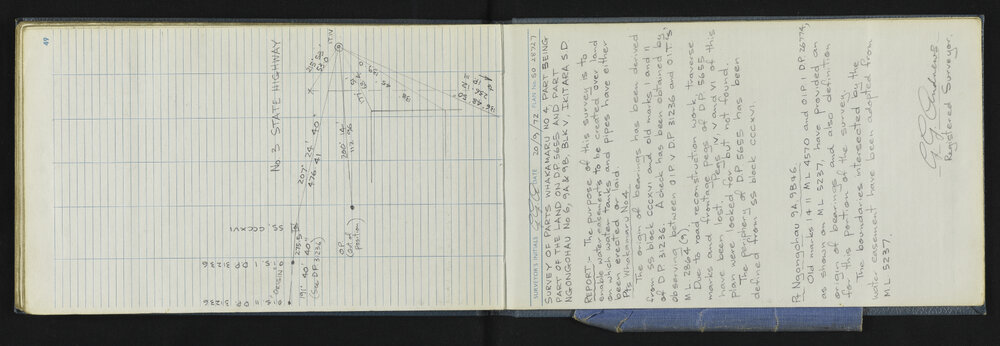 49
No 3 STATE HIGHWAY
IT. IV
207° 24' 40"
476.41
200° 14'
112.96
O.P.
(out of position)
191° 40' 40"
(see D.P. 31236)
SS. CCCXVI
O.I.S. I D.P. 31236
O.I.S. II D.P. 31236
SURVEYOR'S INITIALS
DATE 20/9/72 PLAN No. SO 28727
SURVEY OF PARTS WHAKAMARU NO 4, PART BEING
PART OF THE LAND ON DP 5655 AND PART
NGONGOHAU No 6, 9A & 9B, BLK V, IKITARA SD
REPORT:- The purpose of this survey is to
enable water easements to be created over land
on which water tanks and pipes have either
been erected or laid.
Pts Whakamaru No 4
The origin of bearings has been derived
from SS block CCCXVI and old marks I and II
of DP 31236. A check has been obtained by
observing between OIP V DP 31236 and O.T.'s
ML 2864 (9).
Due to road reconstruction work, traverse
marks and frontage pegs of DP. 5655
have been lost. Pegs IV, V and VI of this
plan were looked for but not found.
The periphery of DP 5655 has been
defined from SS block CCCXVI.
Pt Ngongohau 9A, 9B & 6
Old marks 14 11 ML 4570 and OIP I DP 26774,
as shown on ML 5237, have provided an
origin of bearings and also definition
for this portion of the survey.
The boundaries intersected by the
water easement have been adopted from
ML 5237.
Registered Surveyor.